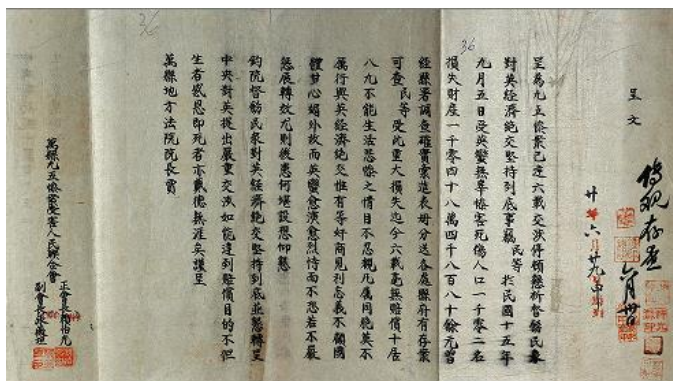 傳觀存查 六月卅日
呈文
呈為九五慘案已達六載交涉停頓懇祈督飭民衆
對英經濟絕交堅持到底事竊民等於民國十五年
九月五日受英蠻無辜慘害死傷人口一千零二名
損失財產一千零四十八萬四千八百八十餘元曾
經縣署調查確實彙造表册分送各處縣府有存案
可查民等受此重大損失迄今六載毫無賠償十居
八九不能生活恐慘之情目不忍覩凡属同胞莫不
厲行與英經濟絕交惟有等奸商見利忘義不顧國
體甘心媚外故而英蠻愈演愈烈恃而不恐若不嚴
懲展轉效尤則後患何堪設想仰懇
鈞院督飭民衆對英經濟絕交堅持到底並懇轉呈
中央對英提出嚴重交涉如能達到賠償目的不但
生者感恩即死者亦戴德無涯矣謹呈
萬縣地方法院院長賈
萬縣九五慘案受害人民聯合會
正會長賴伯光
副會長
36